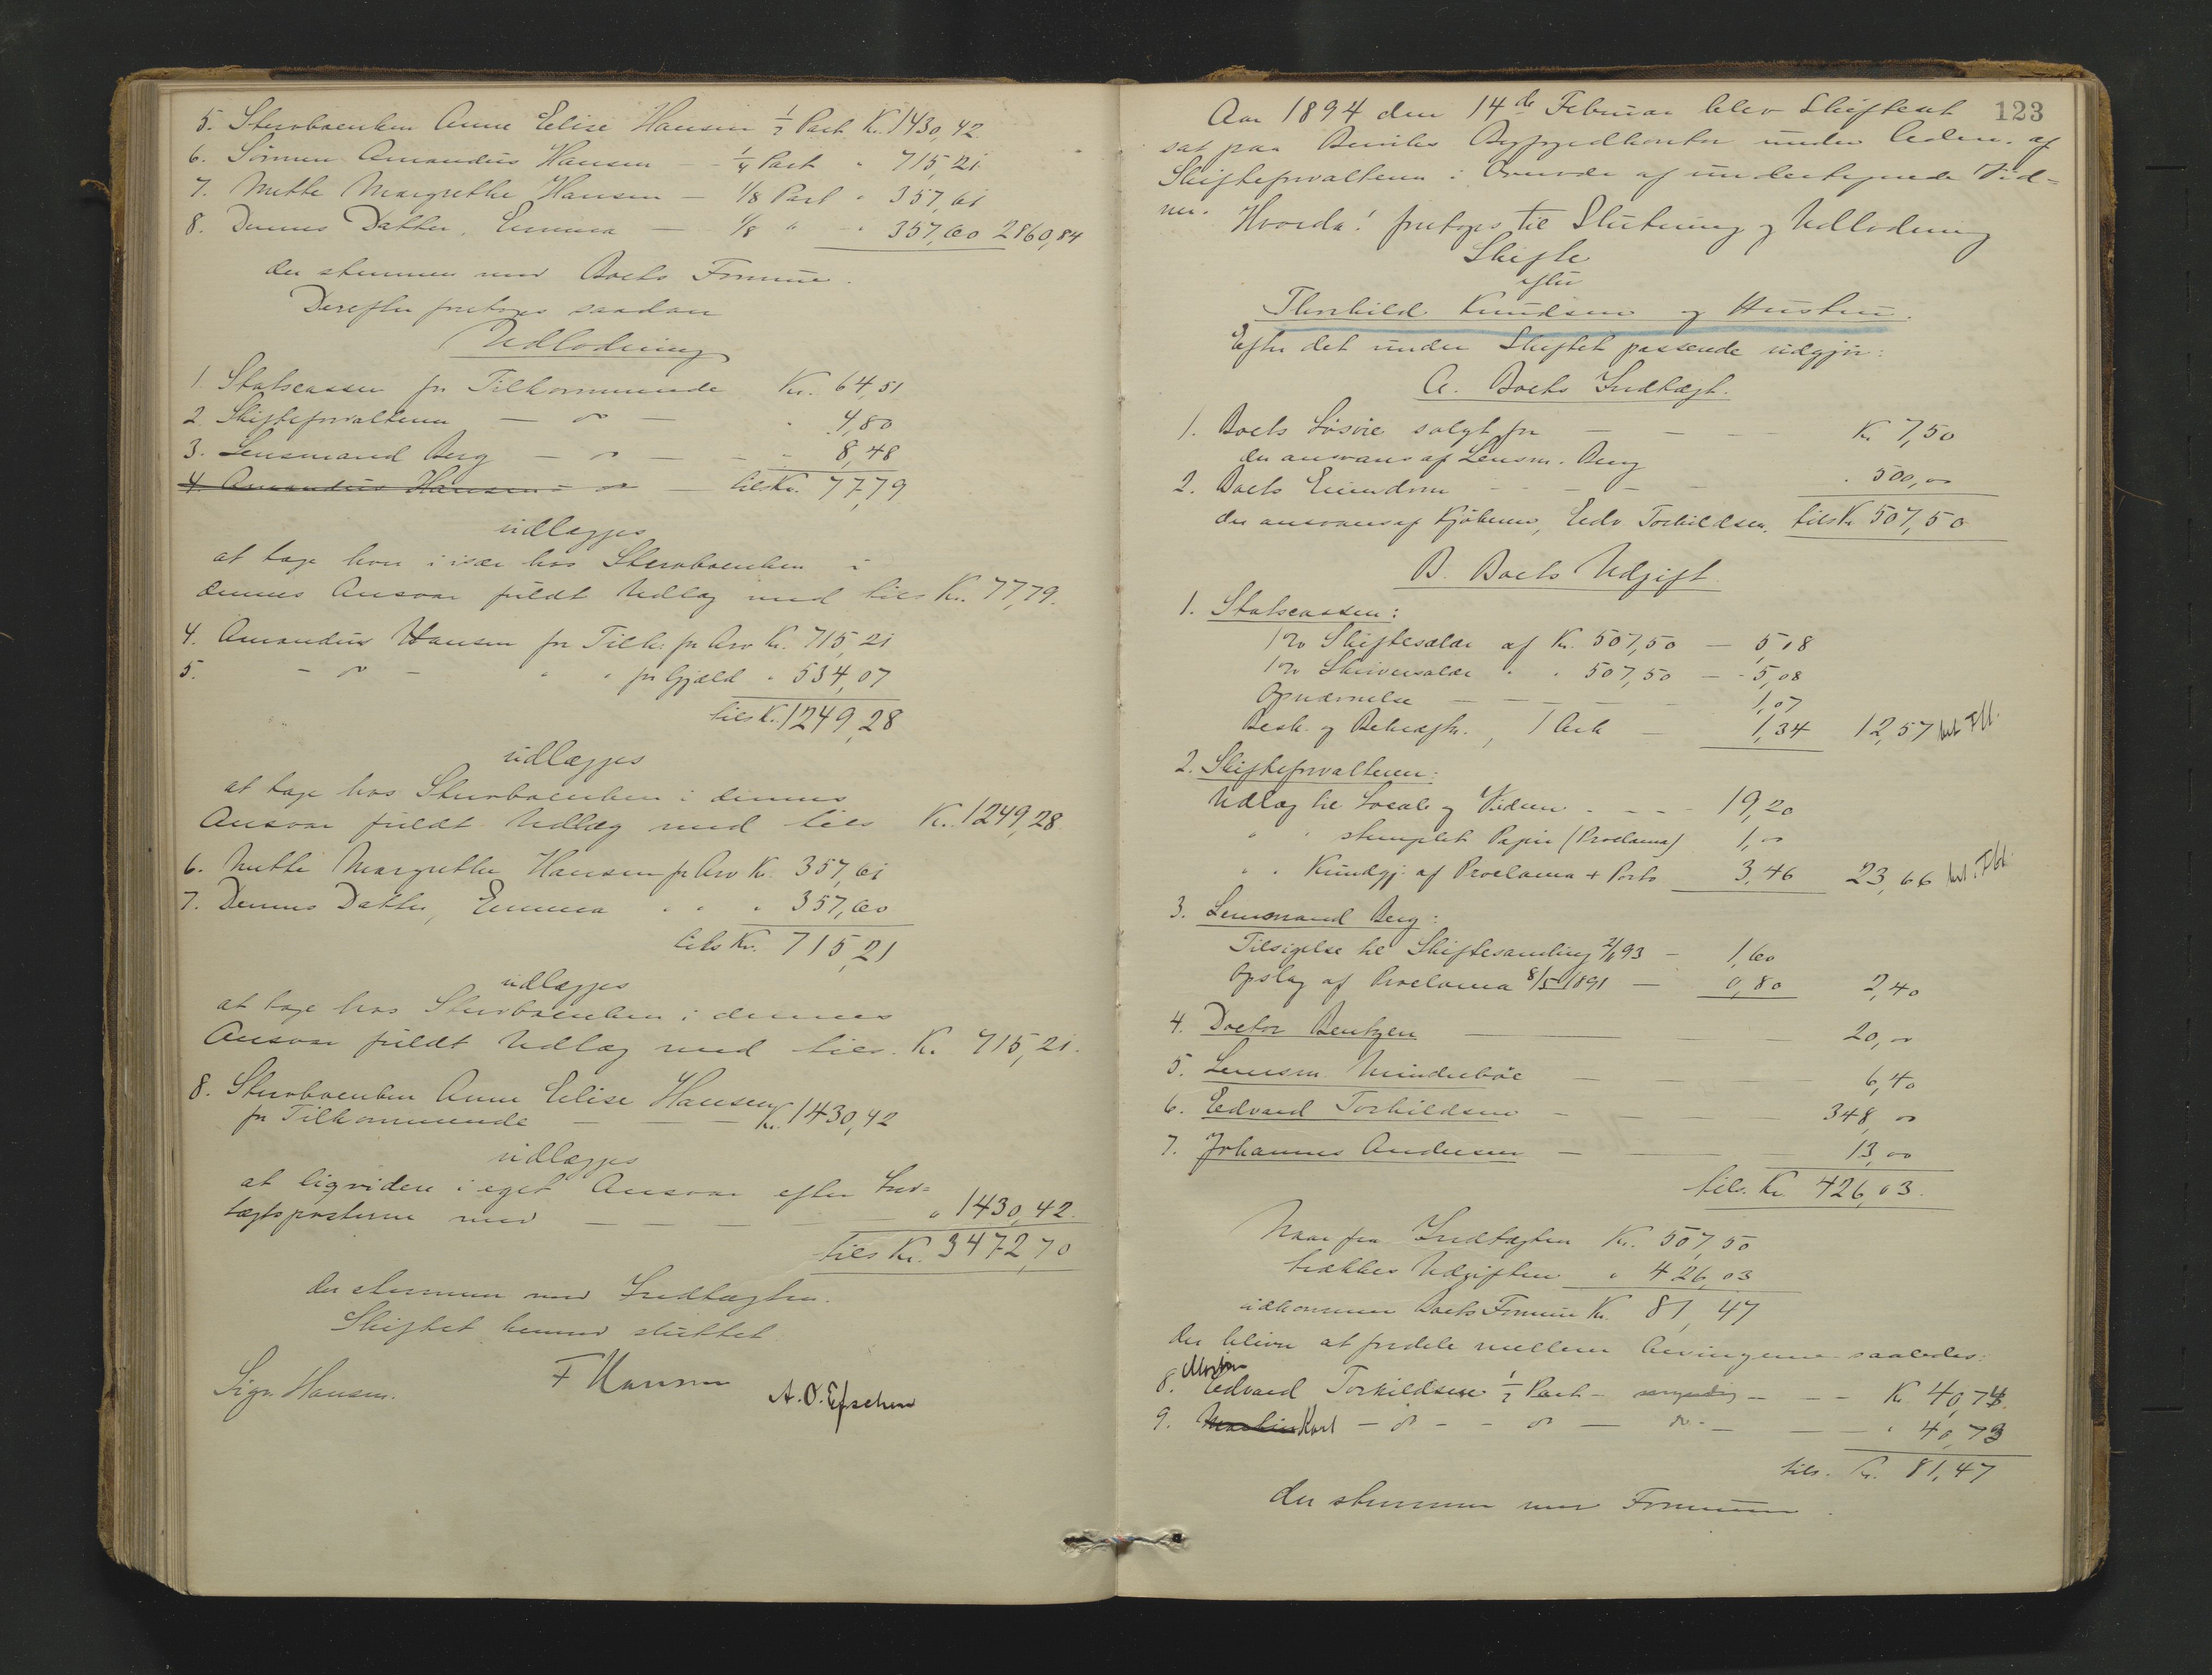 5. Sterboenken Anne Elise Hansen ½ Part Kr. 1430,42
6. Sönnen Amandus Hansen — ¼ Part " 715,21
7. Mette Margrethe Hansen — 1/8 Part " 357,61
8. Dennes Datter, Emma — 1/8 " — " 357,60 2860,84
der stemmer med Boets Formue.
Derefter foretoges saadan
Udlodning
1. Statscassen for Tilkommende Kr. 64,51
2. Skifteforvalteren — do — " 4,80
3. Lensmand Berg — do — — " 8,48
4. Amandus Hansen - do — tils Kr. 77,79
udlægges
at tage hver i især hos Sterboenken i
dennes Ansvar fuldt Udlæg med tils Kr. 77,79.
4. Amandus Hansen for Tilk. for Arv Kr. 715,21
5. — do — " " for Gjæld " 534,07
tils Kr. 1249,28
udlægges
at tage hos Sterboenken i dennes
Ansvar fuldt Udlæg med tils Kr. 1249,28
6. Mette Margrethe Hansen for Arv Kr. 357,61
7. Dennes Datter, Emma " " " 357,60
tils Kr. 715,21
udlægges
at tage hos Sterboenken i dennes
Ansvar fuldt Udlæg med tils. Kr. 715,21.
8. Sterboenken Anne Elise Hansen
for Tilkommende — — — Kr. 1430,42
udlægges
at liqvidere i eget Ansvar efter Ind=
tægtsposterne med — — — — " 1430,42.
tils Kr. 3472,70
der stemmer med Indtægten.
Skiftet hermed sluttet.
Sign. Hansen. F Hansen A. O.
123
Aar 1894 den 14de Februar blev Skifteret
sat paa Byfogedkontor under Ledn. af
Skifteforvalteren i Overvær af undertegnede Vid=
ner. Hvorda! foretoges til Slutning og Udlodning
Skifte
efter
Thorkild Knudsen og Hustru.
Efter det under Skiftet passerede udgjør:
A. Boets Indtægt.
1. Boets Lösöre solgt for — — — Kr 7,50
der ansvares af Lensm. Berg
2. Boets Eiendom — — — " 500,00
der ansvares af Kjöberen, Edv. Torkildsen. tils Kr 507,50
B. Boets Udgift
1. Statscassen:
1% Skiftesalær af Kr. 507,50 — 5,08
1% Skriversalær " " 507,50 — - 5,08
Opnævnelse — — — — — 1,07
Besk. og Bekræftn., 1 Ark — 1,34 12,57
2. Skifteforvalteren:
Udlæg til Locale og Vidner - - - - 19,20
" " stemplet Papir (Proclama) 1,00
" " Kundgj. af Proclama + Porto 3,46 23,66
3. Lensmand Berg:
Tilsigelse til Skiftesamling 93 — 1,60
Opslag af Proclama 8/5 1891 — 0,80 2,40
4. Doctor Bentzen — — — 20,00
5. Lensm. Mindeböe — — — 6,40
6. Edvard Torkildsen — — — 348,00
7. Johannes Andersen — — — 13,00
tils. Kr. 426,03.
Naar fra Indtægten Kr. 507,50
trækkes Udgiften " 426,03
udkommer Boets Formue Kr. 81,47
der bliver at fordele mellem Arvingerne saaledes:
8. Edvard Torkildsen ½ Part — — — Kr 40,74.
9. Karl — do — - do — do - — — " 40,73
tils. Kr. 81,47
der stemmer med Formuen.